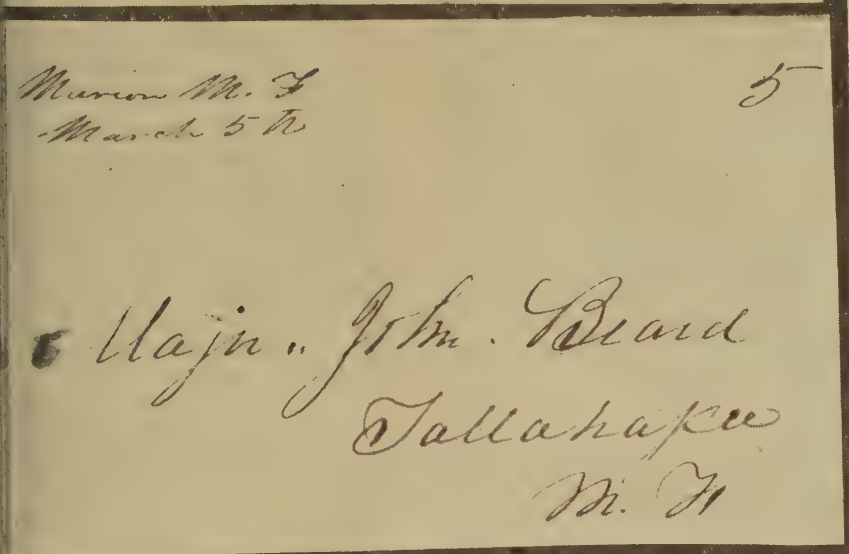 Marion M. F
March 5th
5
Majr. John. Beard
Tallahassee
M. Fl